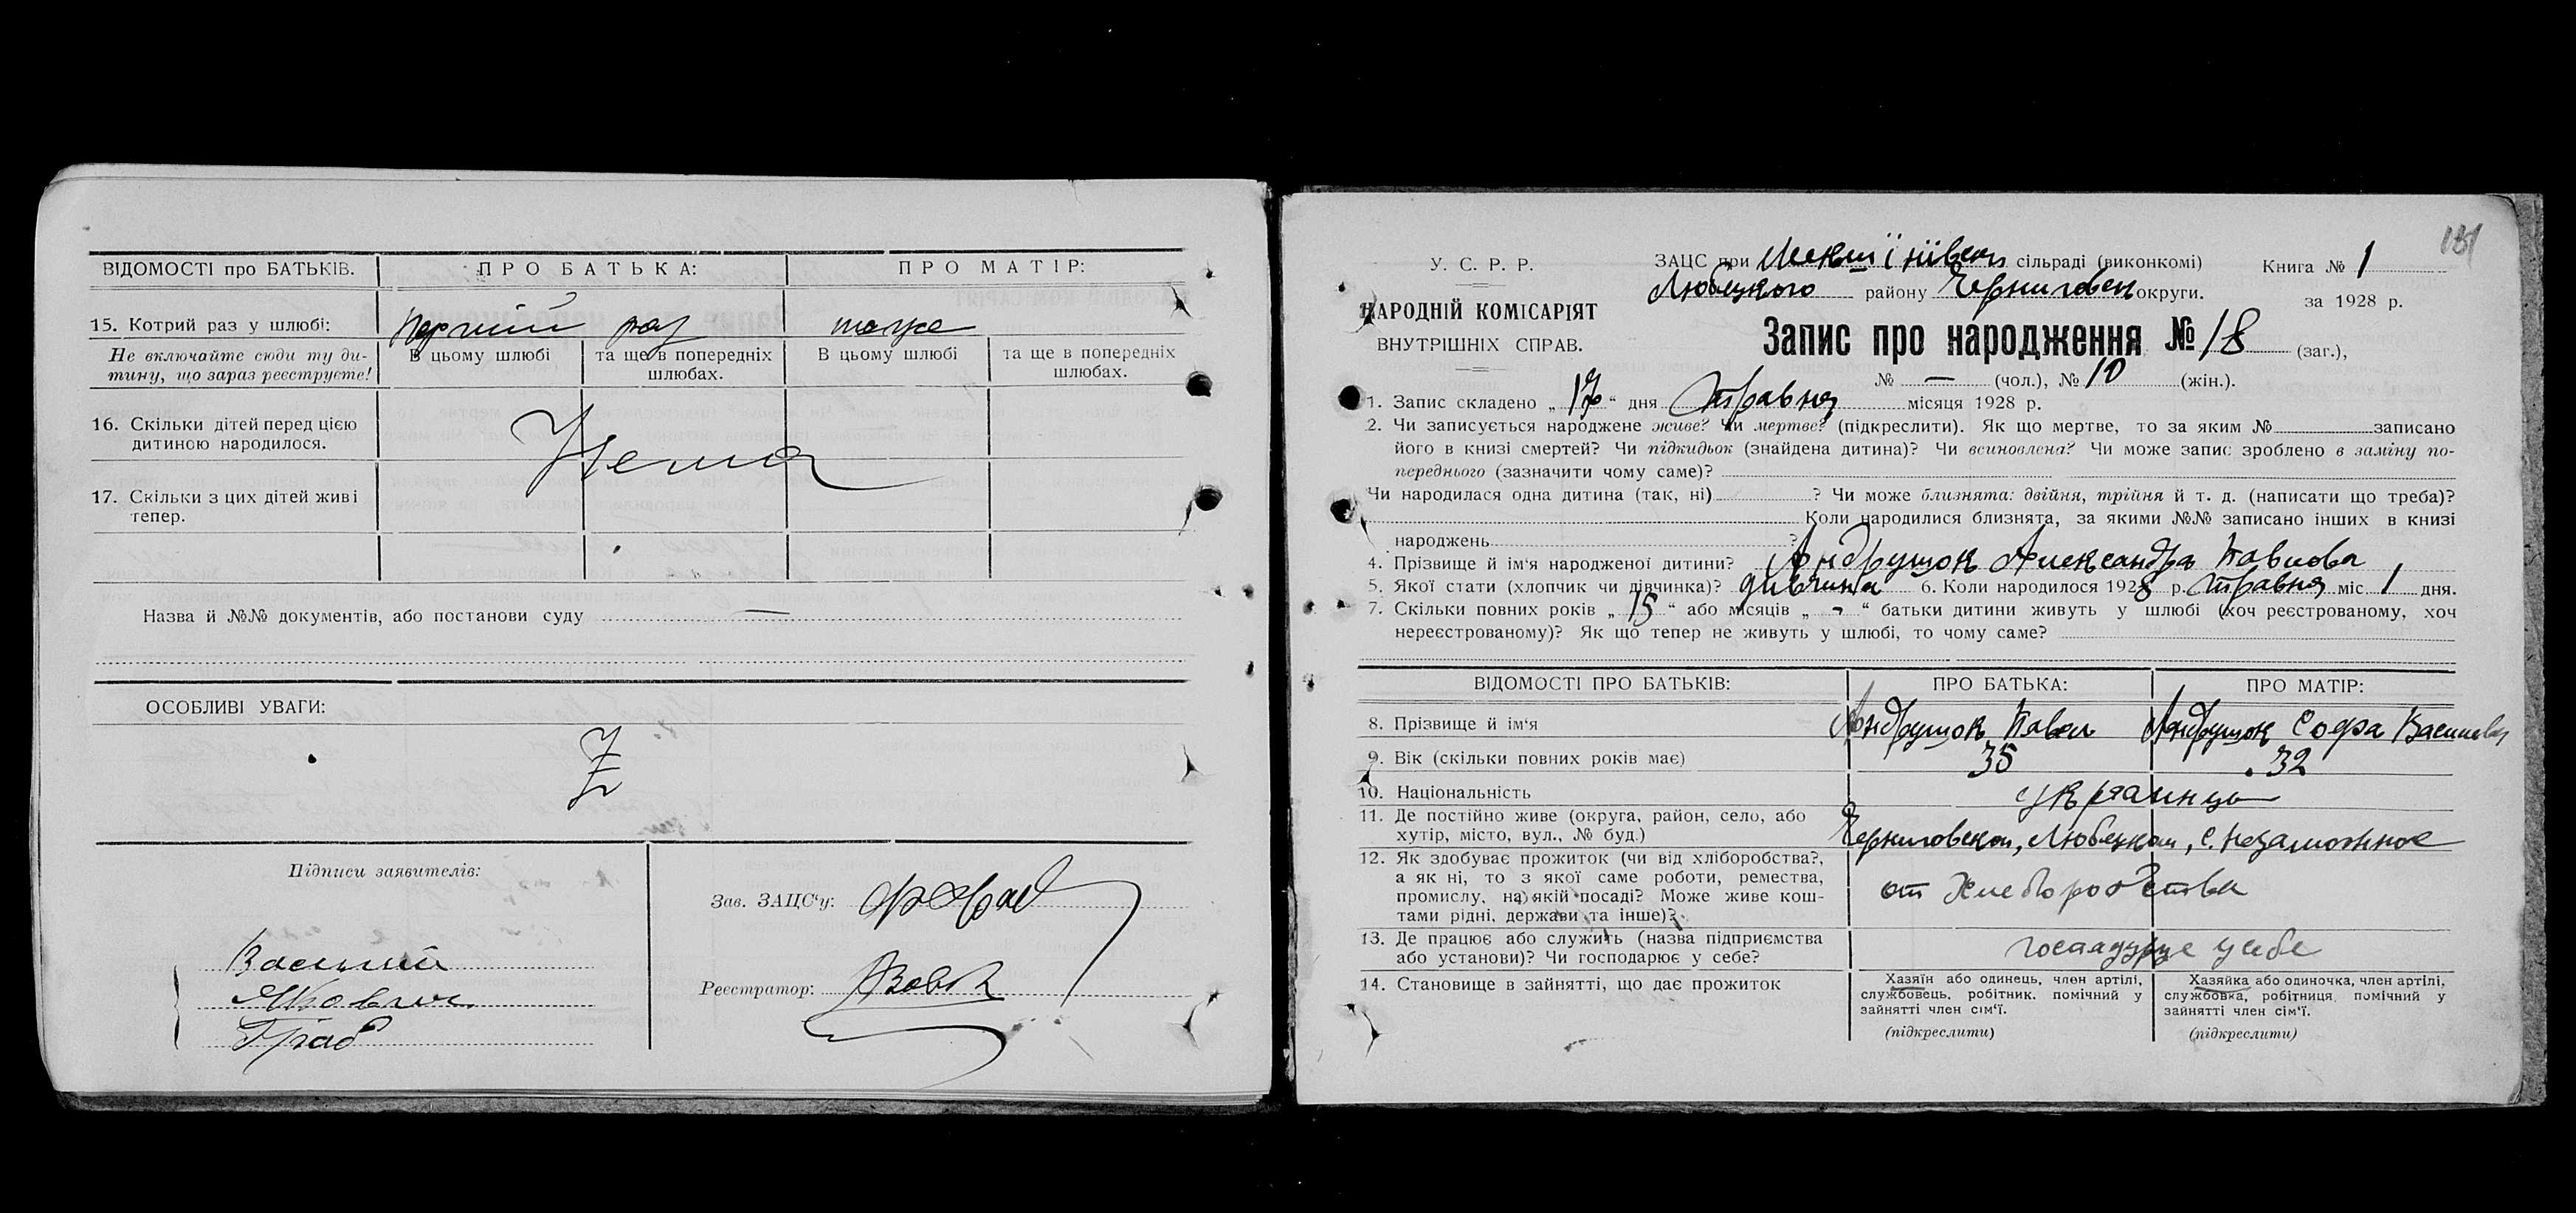 ВІДОМОСТІ про БАТЬКІВ.
ПРО БАТЬКА:
ПРО МАТІР:
15. Котрий раз у шлюбі:
перший раз
также
Не включайте сюди ту ди-
тину, що зараз реєструєте!
В цьому шлюбі
та ще в попередніх
шлюбах.
В цьому шлюбі
та ще в попередніх
шлюбах.
16. Скільки дітей перед цією
дитиною народилося.
Нема
17. Скільки з цих дітей живі
тепер.
Назва й №№ документів, або постанови суду —
ОСОБЛИВІ УВАГИ:
Z
Підписи заявителів:
Василий
Яковлич
Граб
Зав. ЗАЦС'у:
Реєстратор: Вовк
131
У. С. Р. Р.
НАРОДНІЙ КОМІСАРІЯТ
ВНУТРІШНІХ СПРАВ.
ЗАЦС при сільраді (виконкомі)
Любецкого району Черниговск округи.
Книга № 1
за 1928 р.
Запис про народження № 18 (заг.),
№ — (чол.), № 10 (жін.).
1. Запис складено „17“ дня Травня місяця 1928 р.
2. Чи записується народжене живе? Чи мертве? (підкреслити). Як що мертве, то за яким № записано
його в книзі смертей? Чи підкидьок (знайдена дитина)? Чи всиновлена? Чи може запис зроблено в заміну по-
переднього (зазначити чому саме)?
Чи народилася одна дитина (так, ні) ? Чи може близнята: двійня, трійня й т. д. (написати що треба)?
Коли народилися близнята, за якими №№ записано інших в книзі
народжень ?
4. Прізвище й ім'я народженої дитини? Андрушок Александра Павлова
5. Якої стати (хлопчик чи дівчинка)? дивчина 6. Коли народилося 1928 р. Травня міс 1 дня.
7. Скільки повних років „15“ або місяців „-“ батьки дитини живуть у шлюбі (хоч реєстрованому, хоч
нереєстрованому)? Як що тепер не живуть у шлюбі, то чому саме?
ВІДОМОСТІ ПРО БАТЬКІВ:
ПРО БАТЬКА:
ПРО МАТІР:
8. Прізвище й ім'я
Андрушок Павел
Андрушок Софа
9. Вік (скільки повних років має)
35
32
10. Національність
украинцы
11. Де постійно живе (округа, район, село, або
хутір, місто, вул., № буд.)
Черниговской, Любецком, с. Незаможное
12. Як здобуває прожиток (чи від хліборобства?,
а як ні, то з якої саме роботи, ремества,
промислу, на якій посаді? Може живе кош-
тами рідні, держави та інше)?
от Хлеборобства
13. Де працює або служить (назва підприємства
або установи)? Чи господарює у себе?
14. Становище в зайнятті, що дає прожиток
Хазяїн або одинець, член артілі,
службовець, робітник. помічний у
зайнятті член сім'ї.
(підкреслити)
Хазяйка або одиночка, член артілі,
службовка, робітниця, помічний у
зайнятті член сім'ї.
(підкреслити)